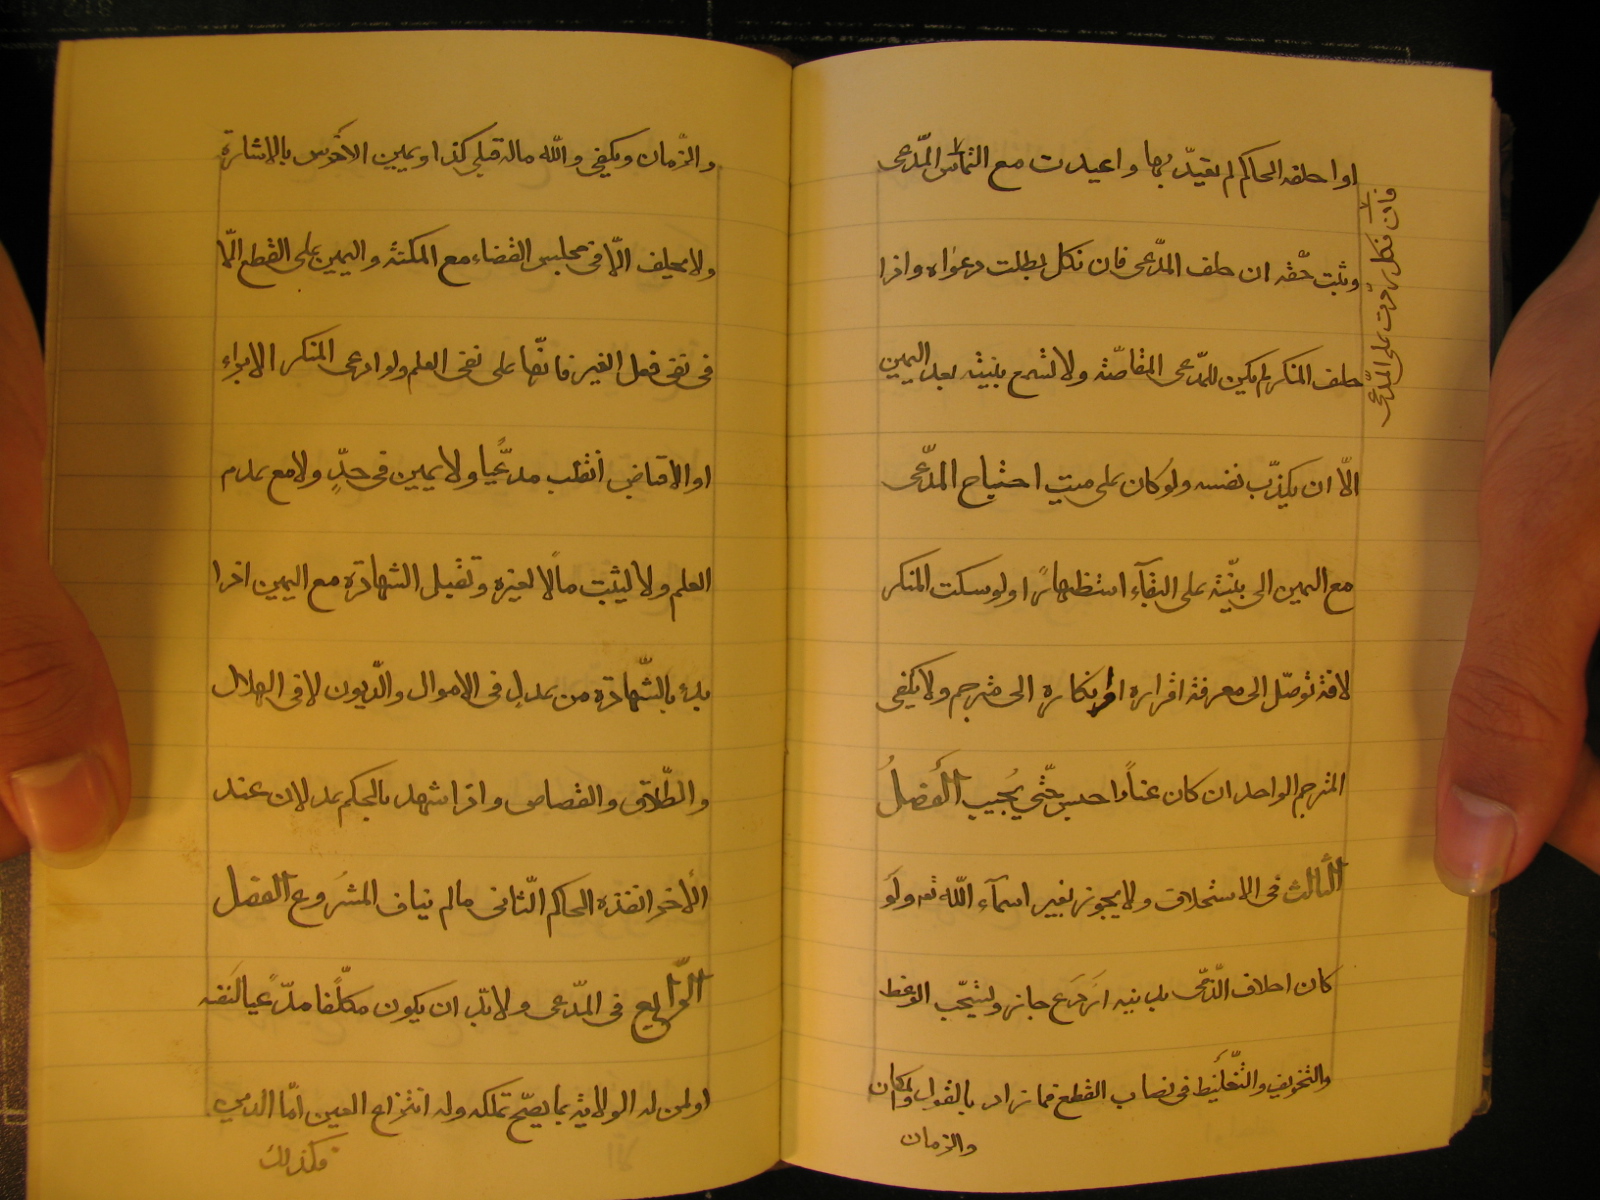 او احلفه الحاكم لم يعتدّ بها واعيدت مع التماس المدّعى
فان نكل ردّت على المدّعى
وثبت حقّه ان حلف المدّعى فان نكل بطلت دعواه واذا
حلف المنكر لم يكن للمدّعى المقاصّة ولا تسمع بينته بعد اليمين
الّا ان يكذّب نفسه ولو كان على ميت احتياج المدّعى
مع اليمين الى بيّنة على البقآء استظهارًا ولو سكت المنكر
لافة توصّل الى معرفة اقراره او انكاره الى مترجم ولا يكفى
المترجم الواحد ان كان عنادًا حبس حتّى يُجيب الفصلُ
الثالث فى الاستحلاف ولا يجوز بغير اسمآء اللّه تعه ولَو
كان احلاف الذّمّى بدينه اَرْدَع جاز ويستحّب الوعظ
والتخويف والتّغليظ فى نصاب القطع فما زاد بالقول والمكان
والزمان
والزّمان ويكفى واللّه ماله قبلى كذا ويمين الاخرس بالاشارة
ولا يحلف الّا فى مجلس القضاء مع المكنة واليمين على القطع الّا
فى نفى فعل الغير فانّها على نفى العلم ولو ادعى المنكر الابراء
او الاقباض انقلب مدعّيا ولا يمين فى حدّ ولا مع عدم
العلم ولا ليثبت مالًا لغيره وتقبل الشهادة مع اليمين اذا
بدء بالشّهادة من عدل فى الاموال والدّيون لا فى الهلال
والطّلاق والقصاص واذا شهد بالحكم عدلان عند
الأخر انفذه الحاكم الثّانى مالم يناف المشروع الفصل
الرّابع فى المدّعى ولا بدّ ان يكون مكلّفا مدّعيا لنفسه
او لمن له الولاية بما يصحّ تملكه وله انتزاع العين امّا الدين
فكذلك